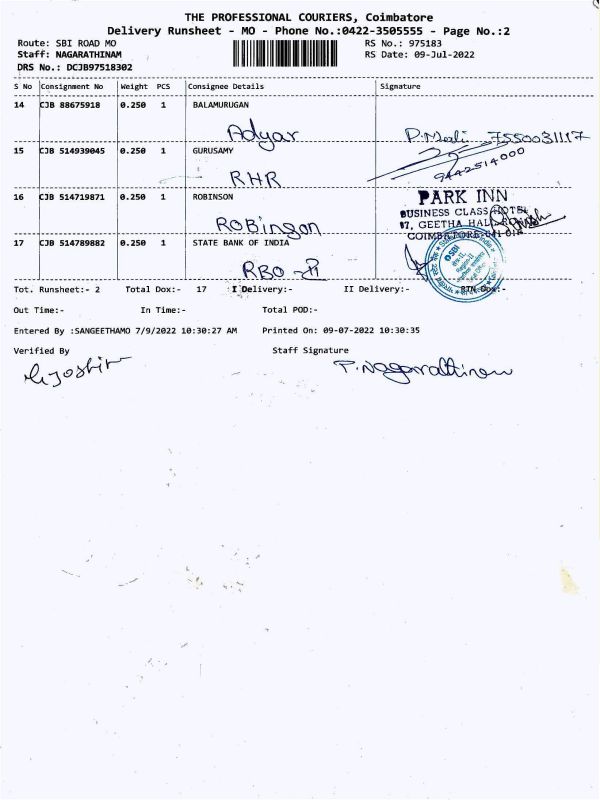 THE PROFESSIONAL COURIERS, Coimbatore
Delivery Runsheet - MO - Phone No.:0422-3505555 - Page No.:2
Route: SBI ROAD MO
RS No.: 975183
Staff: NAGARATHINAM
RS Date: 09-Jul-2022
DRS No.: DCJB97518302
S No Consignment No Weight PCS Consignee Details Signature
14 CJB 88675918 0.250 1 BALAMURUGAN
Adyar P.Mali 7550031117
15 CJB 514939045 0.250 1 GURUSAMY
9442514000
RHR
16 CJB 514719871 0.250 1 ROBINSON
PARK INN
BUSINESS CLASS HOTEL
Robinson
17 CJB 514789882 0.250 1 STATE BANK OF INDIA
SBI
RBO - II
Tot. Runsheet:- 2 Total Dox:- 17 I Delivery:- II Delivery:-
Out Time:- In Time:- Total POD:-
Entered By :SANGEETHAMO 7/9/2022 10:30:27 AM Printed On: 09-07-2022 10:30:35
Verified By Staff Signature
P.Nagarathinam